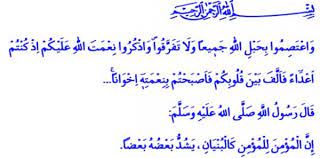 بِسْمِ اللهِ الرَّحْمٰنِ الرَّحِيمِ
وَاعْتَصِمُوا بِحَبْلِ اللهِ جَمِيعاً وَلَا تَفَرَّقُوا وَاذْكُرُوا نِعْمَتَ اللهِ عَلَيْكُمْ اِذْ كُنْتُمْ
اَعْدَٓاءً فَاَلَّفَ بَيْنَ قُلُوبِكُمْ فَاَصْبَحْتُمْ بِنِعْمَتِهِ اِخْوَاناًۚ...
قَالَ رَسُولُ اللهِ صَلَّى اللهُ عَلَيْهِ وَسَلَّمَ:
إِنَّ الْمُؤْمِنَ لِلْمُؤْمِنِ كَالْبُنْيَانِ، يَشُدُّ بَعْضُهُ بَعْضاً.